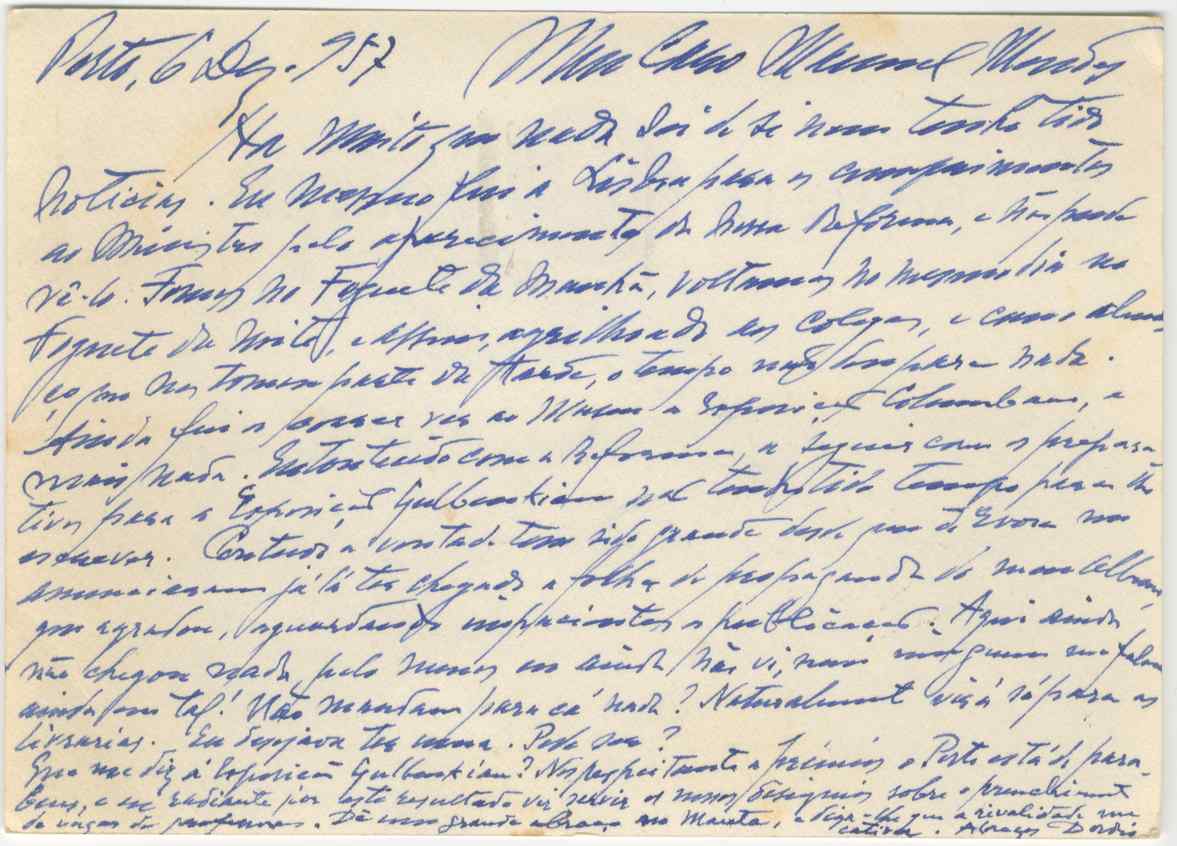 Porto, 6 Dez. 957 Meu Caro Manuel Mendes
Há muito que nada sei de si nem tenho tido
notícias. Eu mesmo fui a Lisboa para os cumprimentos
ao Ministro pelo aparecimento da nossa Reforma, e não pude
vê-lo. Fomos no Foguete da manhã, voltamos no mesmo dia no
Foguete da noite, e assim, agrilhoado aos colegas, e como almo-
ço que nos tomou parte da tarde, o tempo não deu para nada.
Ainda fui a correr ver ao Museu a Exposição Columbano, e
mais nada. Entontecido com a Reforma, a seguir com os prepara-
tivos para a Exposição Gulbenkian não tenho tido tempo para lhe
escrever. Contudo a vontade tem sido grande desde que de Évora me
anunciaram já lá ter chegado a folha de propaganda do meu album,
que agradou, aguardando impacientes a publicação. Aqui ainda
não chegou nada, pelo menos eu ainda não vi, nem ninguem me falou
ainda em tal! Não mandam para cá nada? Naturalmente virá só para as
livrarias. Eu desejava ter uma. Pode ser?
Que me diz á Exposição Gulbenkian? No respeitante a prémios o Porto está de para-
bens, e eu radiante por este resultado vir servir os nossos designios sobre o preenchimento
de vagas de professores. Dê um grande abraço no Maneta, e diga-lhe que a rivalidade me
cativa. Abraços Dordio